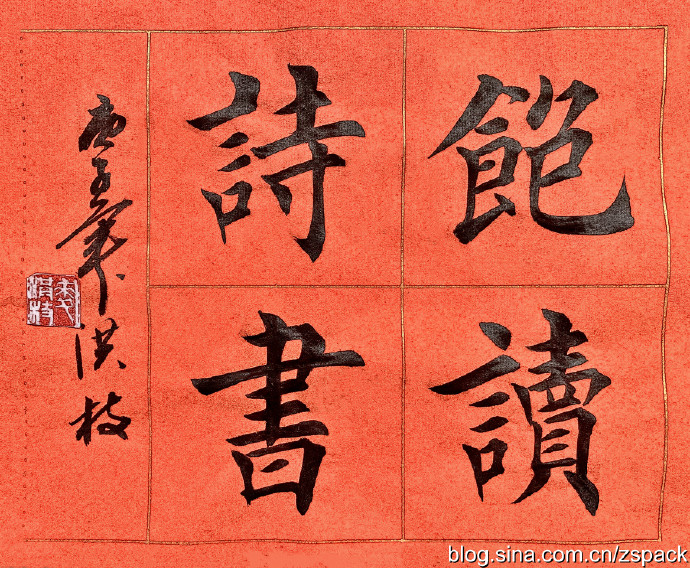 飽讀
詩書
庚子 洪枝
blog.sina.com.cn/zspack